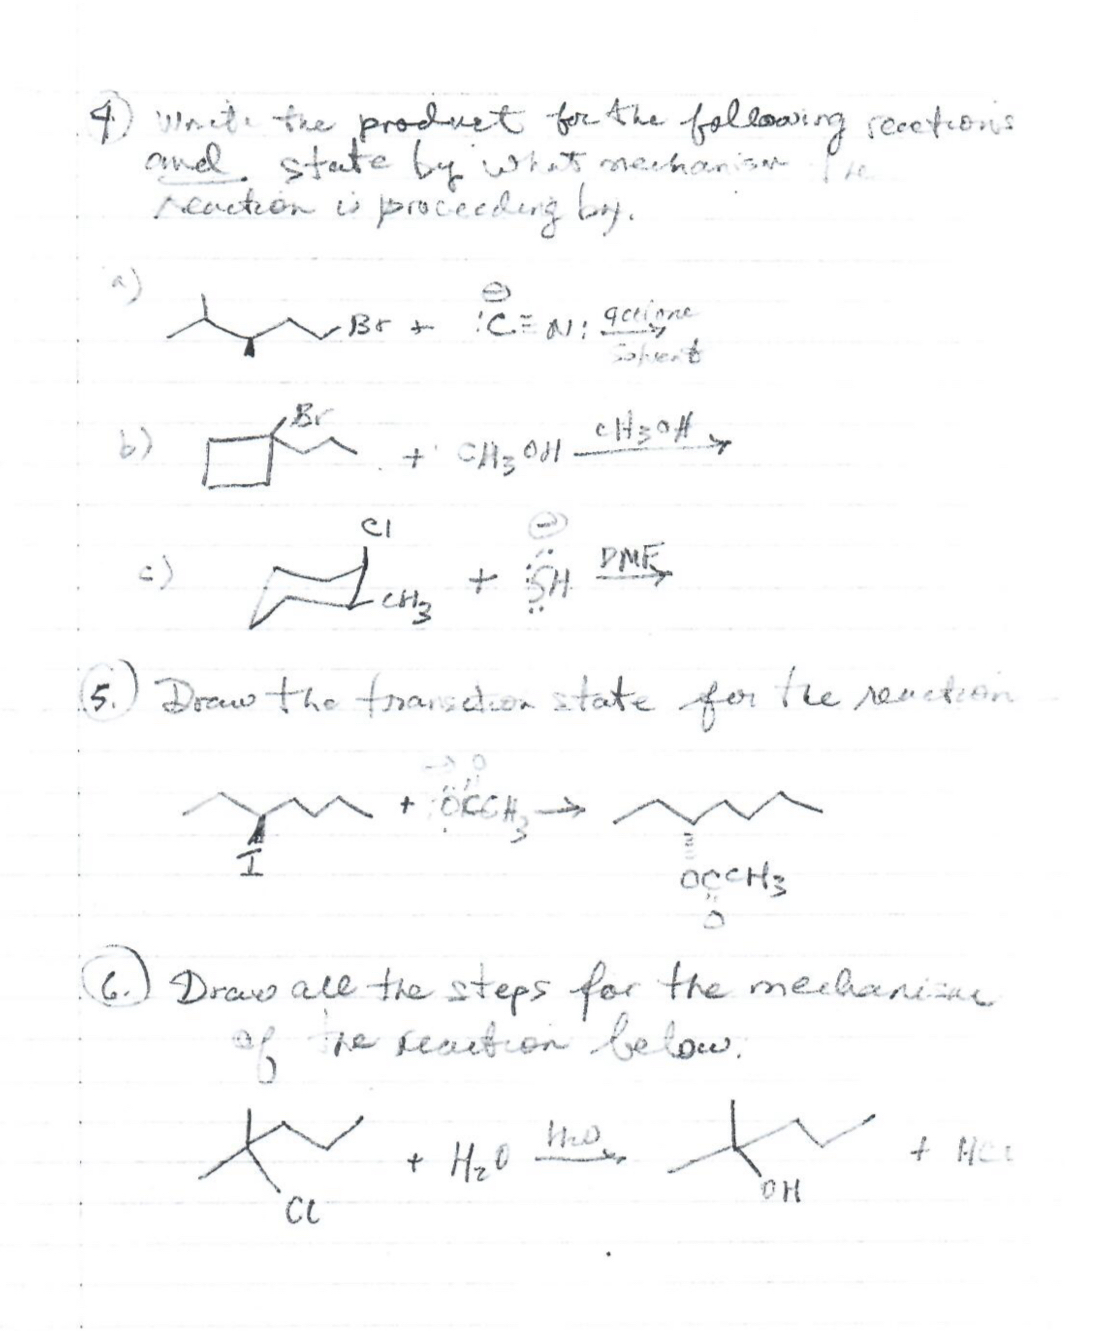 4) Write the product for the following reactions
and state by what mechanism the
reaction is proceeding by.
a)
Br + ⊖:C≡N: acetone
solvent
b) Br + CH3OH CH3OH
c) Cl CH3 + ⊖:SH DMF
5.) Draw the transition state for the reaction
I + :OCCH3 O → OCCH3
O
6.) Draw all the steps for the mechanism
of the reaction below.
Cl + H2O H2O OH + HCl